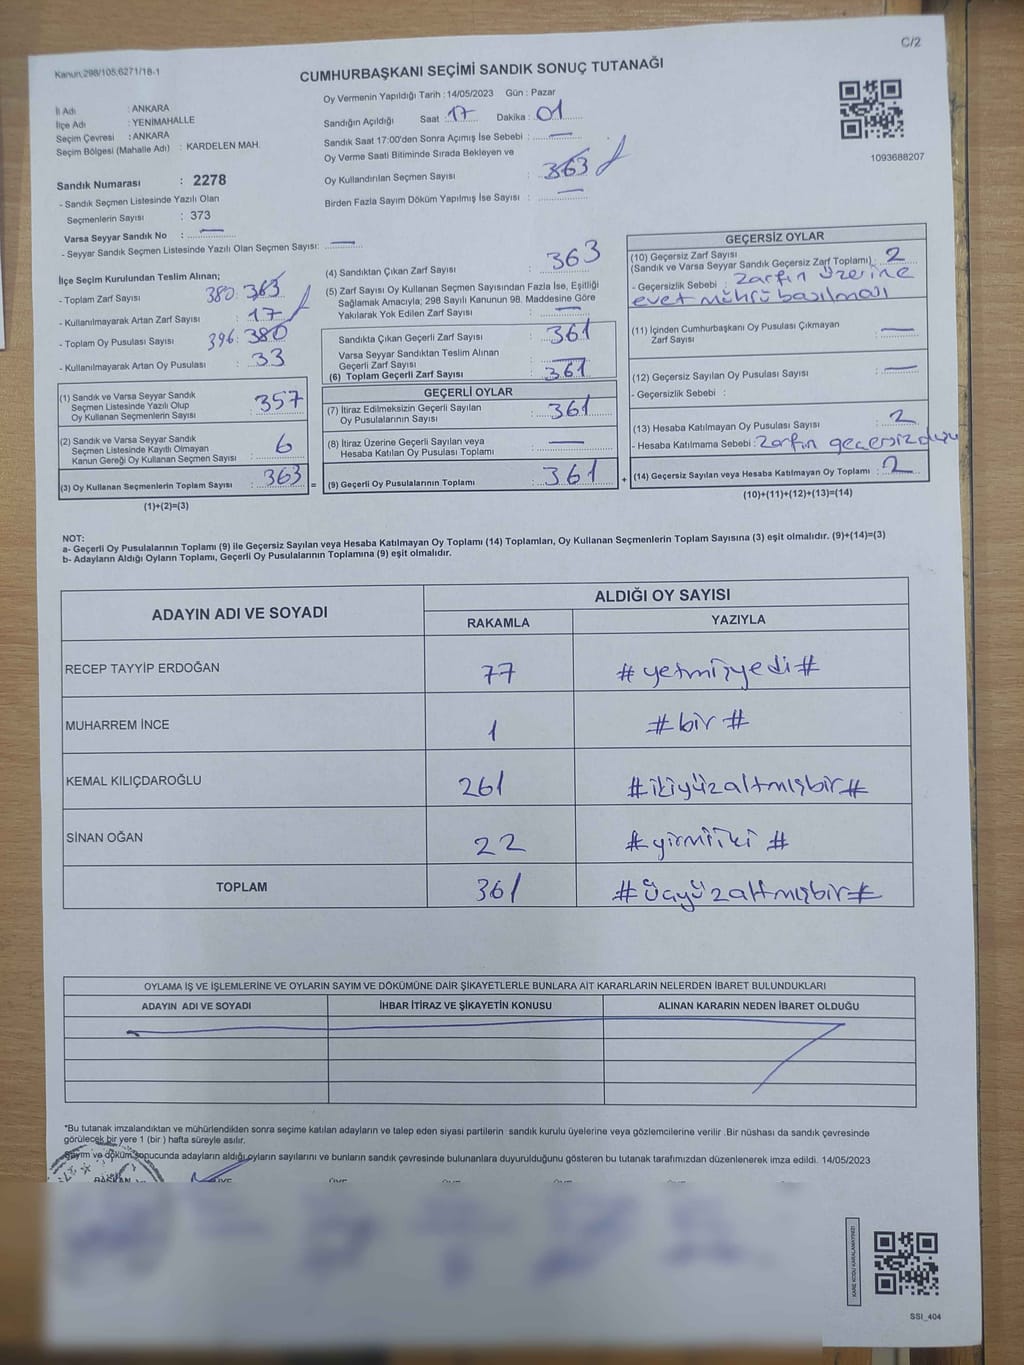 C/2
Kanun,298/105,6271/18-1
CUMHURBAŞKANI SEÇİMİ SANDIK SONUÇ TUTANAĞI
İl Adı : ANKARA
İlçe Adı : YENİMAHALLE
Seçim Çevresi : ANKARA
Seçim Bölgesi (Mahalle Adı) : KARDELEN MAH.
Sandık Numarası : 2278
- Sandık Seçmen Listesinde Yazılı Olan
Seçmenlerin Sayısı : 373
Varsa Seyyar Sandık No : —
- Seyyar Sandık Seçmen Listesinde Yazılı Olan Seçmen Sayısı: —
Oy Vermenin Yapıldığı Tarih : 14/05/2023 Gün : Pazar
Sandığın Açıldığı Saat : 17 Dakika : 01
Sandık Saat 17:00'den Sonra Açımış İse Sebebi : —
Oy Verme Saati Bitiminde Sırada Bekleyen ve
Oy Kullandırılan Seçmen Sayısı : 363
Birden Fazla Sayım Döküm Yapılmış İse Sayısı : —
1093688207
İlçe Seçim Kurulundan Teslim Alınan;
- Toplam Zarf Sayısı 380 : 363
- Kullanılmayarak Artan Zarf Sayısı : 17
- Toplam Oy Pusulası Sayısı 396 : 380
- Kullanılmayarak Artan Oy Pusulası : 33
(1) Sandık ve Varsa Seyyar Sandık
Seçmen Listesinde Yazılı Olup
Oy Kullanan Seçmenlerin Sayısı : 357
(2) Sandık ve Varsa Seyyar Sandık
Seçmen Listesinde Kayıtlı Olmayan
Kanun Gereği Oy Kullanan Seçmen Sayısı : 6
(3) Oy Kullanan Seçmenlerin Toplam Sayısı : 363 =
(1)+(2)=(3)
(4) Sandıktan Çıkan Zarf Sayısı : 363
(5) Zarf Sayısı Oy Kullanan Seçmen Sayısından Fazla İse, Eşitliği
Sağlamak Amacıyla; 298 Sayılı Kanunun 98. Maddesine Göre
Yakılarak Yok Edilen Zarf Sayısı : —
Sandıkta Çıkan Geçerli Zarf Sayısı : 361
Varsa Seyyar Sandıktan Teslim Alınan
Geçerli Zarf Sayısı : —
(6) Toplam Geçerli Zarf Sayısı : 361
GEÇERLİ OYLAR
(7) İtiraz Edilmeksizin Geçerli Sayılan
Oy Pusulalarının Sayısı : 361
(8) İtiraz Üzerine Geçerli Sayılan veya
Hesaba Katılan Oy Pusulası Toplamı : —
(9) Geçerli Oy Pusulalarının Toplamı : 361 +
GEÇERSİZ OYLAR
(10) Geçersiz Zarf Sayısı
(Sandık ve Varsa Seyyar Sandık Geçersiz Zarf Toplamı) : 2
- Geçersizlik Sebebi : zarfın üzerine
evet mührü basılması
(11) İçinden Cumhurbaşkanı Oy Pusulası Çıkmayan
Zarf Sayısı : —
(12) Geçersiz Sayılan Oy Pusulası Sayısı : —
- Geçersizlik Sebebi :
(13) Hesaba Katılmayan Oy Pusulası Sayısı : 2
- Hesaba Katılmama Sebebi : zarfın geçersiz
(14) Geçersiz Sayılan veya Hesaba Katılmayan Oy Toplamı : 2
(10)+(11)+(12)+(13)=(14)
NOT:
a- Geçerli Oy Pusulalarının Toplamı (9) ile Geçersiz Sayılan veya Hesaba Katılmayan Oy Toplamı (14) Toplamları, Oy Kullanan Seçmenlerin Toplam Sayısına (3) eşit olmalıdır. (9)+(14)=(3)
b- Adayların Aldığı Oyların Toplamı, Geçerli Oy Pusulalarının Toplamına (9) eşit olmalıdır.
ADAYIN ADI VE SOYADI ALDIĞI OY SAYISI
RAKAMLA YAZIYLA
RECEP TAYYİP ERDOĞAN 77 #yetmişyedi#
MUHARREM İNCE 1 #bir#
KEMAL KILIÇDAROĞLU 261 #ikiyüzaltmışbir#
SİNAN OĞAN 22 #yirmiiki#
TOPLAM 361 #üçyüzaltmışbir#
OYLAMA İŞ VE İŞLEMLERİNE VE OYLARIN SAYIM VE DÖKÜMÜNE DAİR ŞİKAYETLERLE BUNLARA AİT KARARLARIN NELERDEN İBARET BULUNDUKLARI
ADAYIN ADI VE SOYADI İHBAR İTİRAZ VE ŞİKAYETİN KONUSU ALINAN KARARIN NEDEN İBARET OLDUĞU
*Bu tutanak imzalandıktan ve mühürlendikten sonra seçime katılan adayların ve talep eden siyasi partilerin sandık kurulu üyelerine veya gözlemcilerine verilir .Bir nüshası da sandık çevresinde
görülecek bir yere 1 (bir ) hafta süreyle asılır.
Sayım ve döküm sonucunda adayların aldığı oyların sayılarını ve bunların sandık çevresinde bulunanlara duyurulduğunu gösteren bu tutanak tarafımızdan düzenlenerek imza edildi. 14/05/2023
KARE KODU KARALAMAYINIZ!
SSI_404